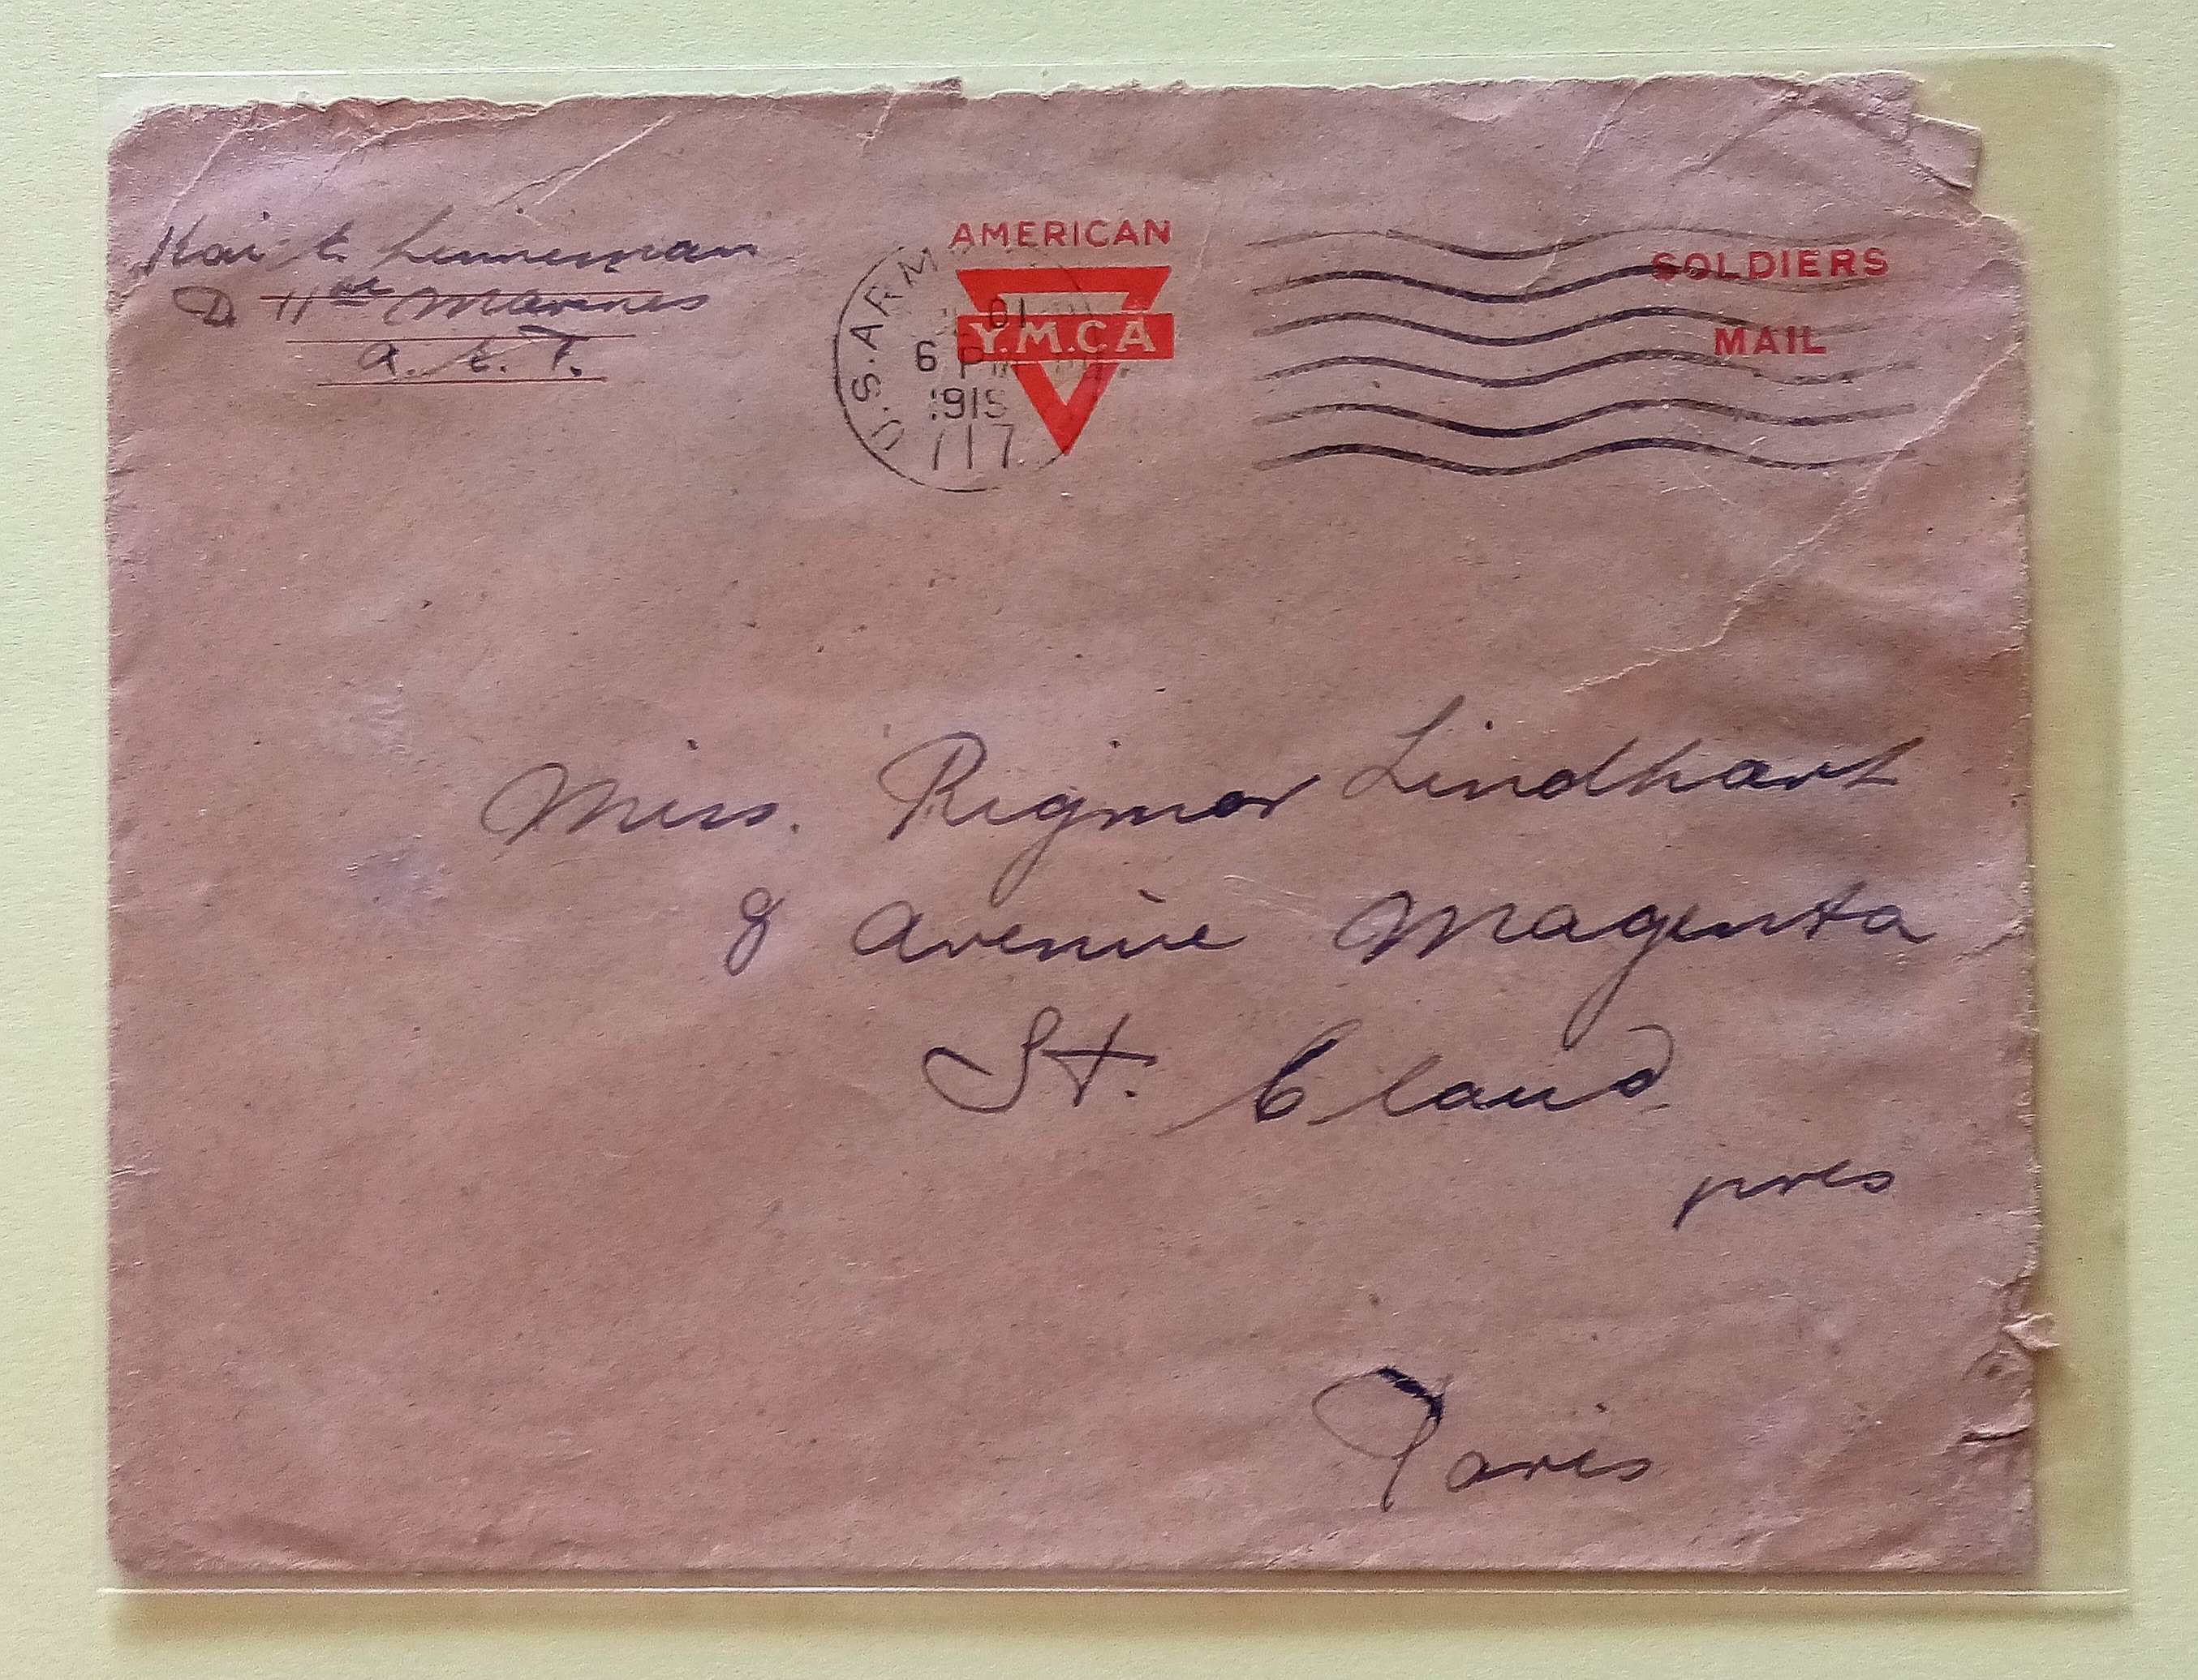 Kai E. Linneman
D 11th Marines
A. E. F.
AMERICAN
Y.M.C.A
SOLDIERS
MAIL
U.S.ARM
01
6 PM
191
717
Miss. Rigmor Lindhart
8 Avenue Magenta
St. Cloud
pres
Paris